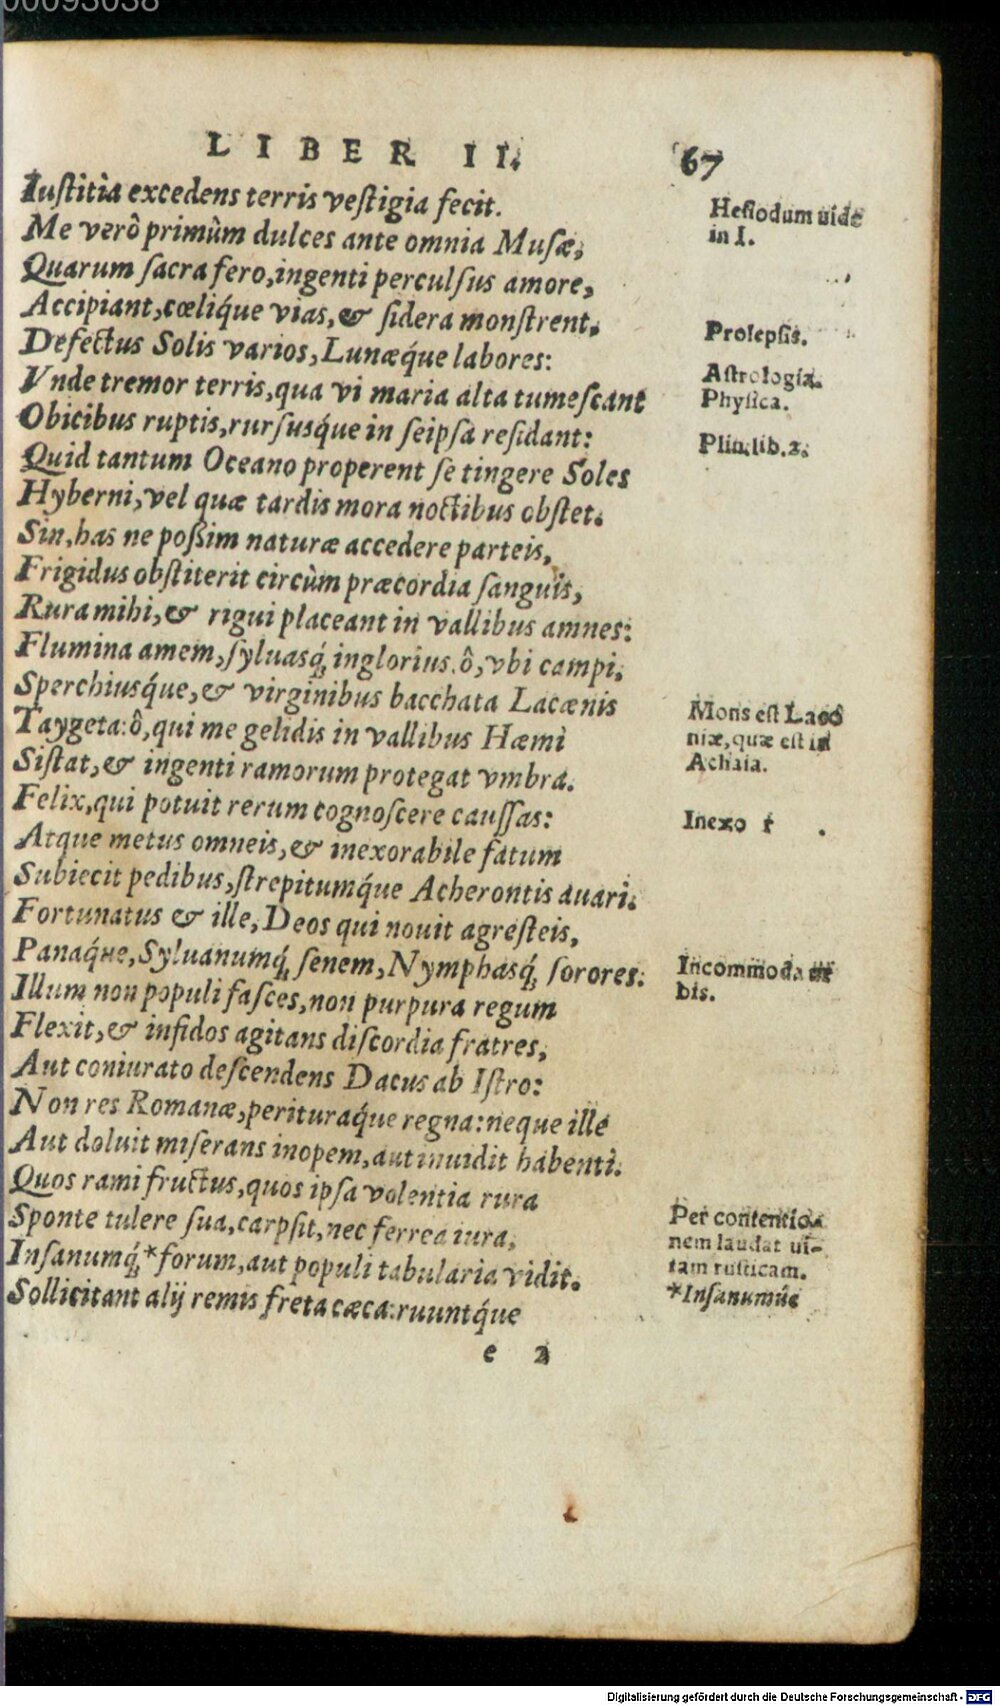 00093038
LIBER II. 67
Iuſtitia excedens terris veſtigia fecit.
Me verò primùm dulces ante omnia Muſæ,
Quarum ſacra fero, ingenti perculſus amore,
Accipiant, cœliq́ue vias, & ſidera monſtrent,
Defectus Solis varios, Lunæq́ue labores:
Vnde tremor terris, qua vi maria alta tumeſcant
Obicibus ruptis, rurſusq́ue in ſeipſa reſidant:
Quid tantum Oceano properent ſe tingere Soles
Hyberni, vel quæ tardis mora noctibus obſtet.
Sin, has ne poßim naturæ accedere parteis,
Frigidus obſtiterit circùm præcordia ſanguis,
Rura mihi, & rigui placeant in vallibus amnes:
Flumina amem, ſyluasq́; inglorius. ô, vbi campi,
Sperchiusq́ue, & virginibus bacchata Lacænis
Taygeta: ô, qui me gelidis in vallibus Hæmi
Siſtat, & ingenti ramorum protegat vmbra.
Felix, qui potuit rerum cognoſcere cauſſas:
Atque metus omneis, & inexorabile fatum
Subiecit pedibus, ſtrepitumq́ue Acherontis auari.
Fortunatus & ille, Deos qui nouit agreſteis,
Panaq́ue, Syluanumq́; ſenem, Nymphasq́; ſorores:
Illum non populi faſces, non purpura regum
Flexit, & infidos agitans diſcordia fratres,
Aut coniurato deſcendens Dacus ab Iſtro:
Non res Romanæ, perituraq́ue regna: neque ille
Aut doluit miſerans inopem, aut inuidit habenti.
Quos rami fructus, quos ipſa volentia rura
Sponte tulere ſua, carpſit, nec ferrea iura,
Inſanumq́; *forum, aut populi tabularia vidit.
Sollicitant alij remis freta cæca: ruuntq́ue
e 2
Heſiodum uide
in I.
Prolepſis.
Aſtrologia.
Phyſica.
Plin. lib. 2.
Mons eſt Laco
niæ, quæ eſt in
Achaia.
Inexo r
Incommoda ur
bis.
Per contentio
nem laudat ui-
tam ruſticam.
*Inſanumúe
Digitalisierung gefördert durch die Deutsche Forschungsgemeinschaft - DFG